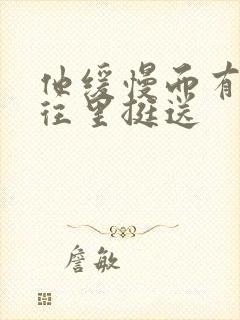 他缓慢而有
往里挺送
詹敏